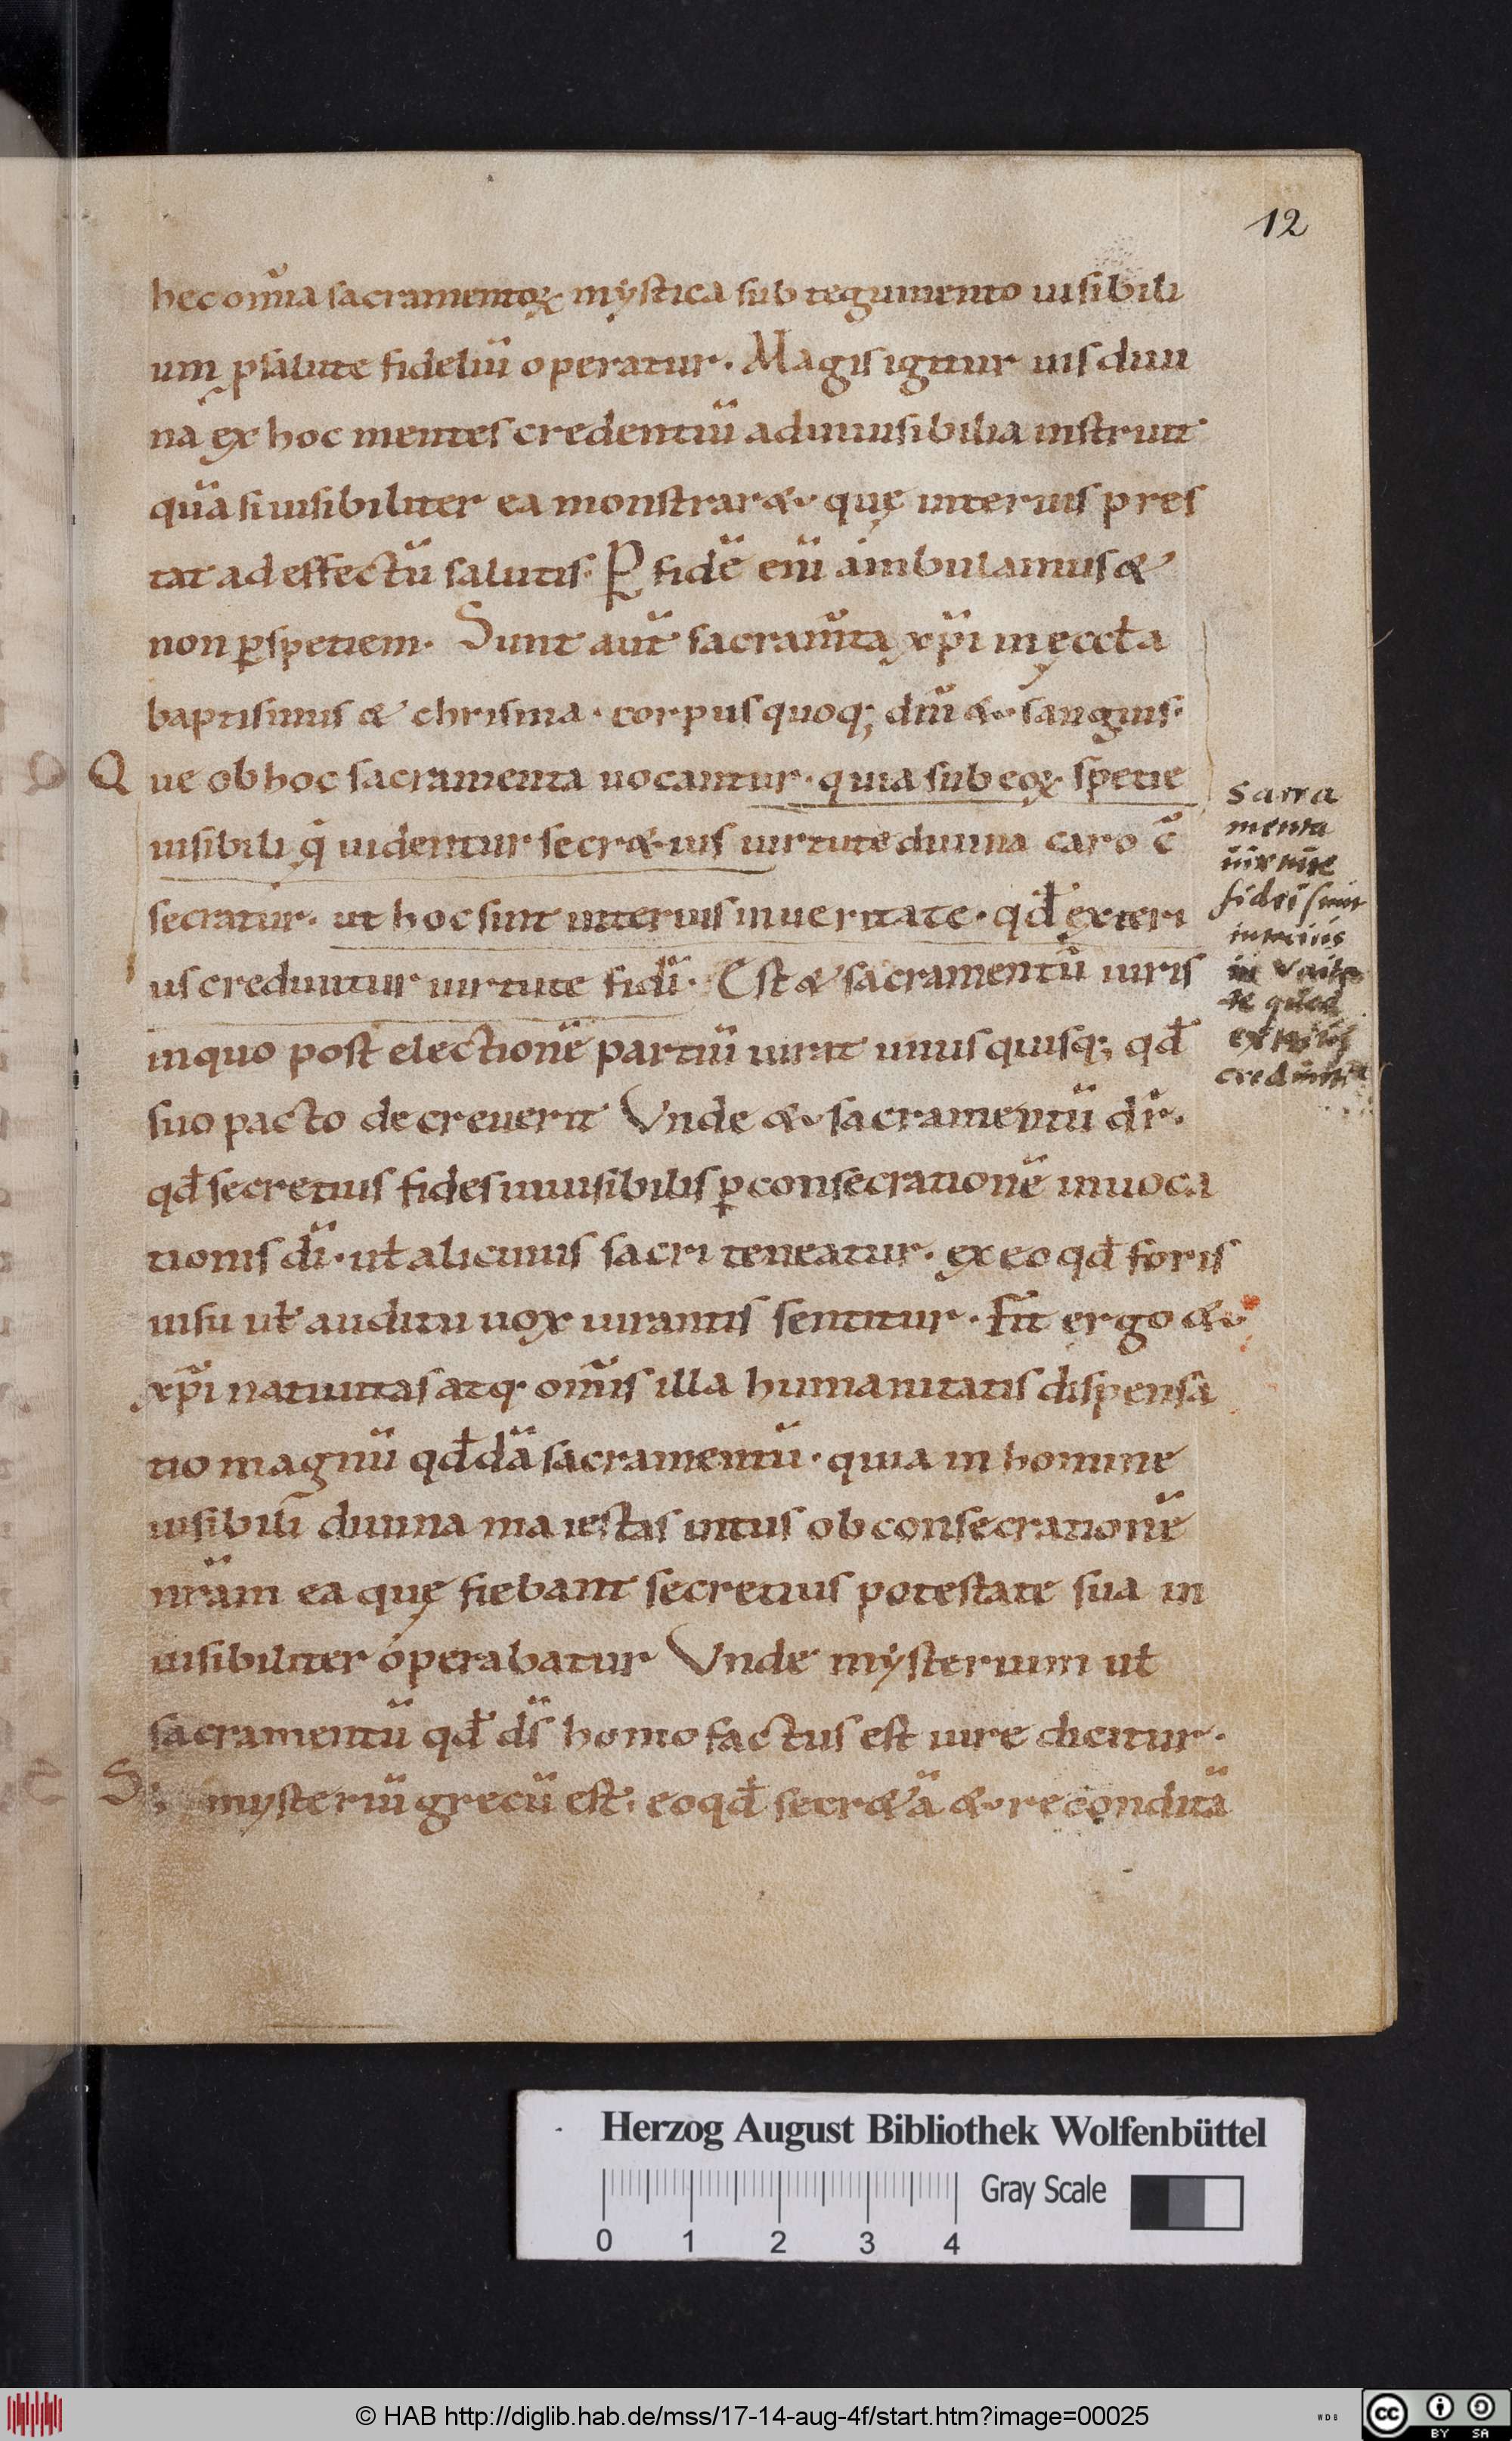 12
hec om̄ia sacramentoꝝ mystica sub tegumento uisibili
um ꝓ salute fideliū operatur. Magis igitur uis diui
na ex hoc mentes credentiū ad inuisibilia instruit
quā si uisibiliter ea monstrar& que̜ interius pres
tat ad effectū salutis. P̲ fidē eni̅ ambulamus &
non ꝑ spetiem. Sunt aut̄ sacram̄ta xp̄i in e̜ccƚa
baptismus & chrisma. corpus quoq; dn̄i & sanguis.
Que ob hoc sacramenta uocantur. quia sub eoꝝ spetie
uisibili q̇ uidentur secr&ius uirtute diuina caro c̄
secratur. ut hoc sint interius in ueritate. qđ exteri
us creduntur uirtute fidi̅. Est & sacramentū iuris
in quo post electionē partiū iurat unus quisq; qđ
suo pacto decreuerit Vnde & sacramentū dr̄.
qđ secretius fides inuisibilis ꝑ consecrationē inuoca
tionis di̅. uƚ alicuius sacri teneatur. ex eo qđ foris
uisu uƚ auditu uox iurantis sentitur. Fit ergo &
xp̄i natiuitas atq. om̄is illa humanitatis dispensa
tio magnū qđdā sacramentū. quia in homine
uisibili diuina maiestas intus ob consecrationē
nr̄am ea que̜ fiebant secretius potestate sua in
uisibiliter operabatur Vnde mysterium uƚ
sacramentū qđ ds̄ homo factus est iure dicitur.
S; mysteriū grecū est. eo qđ secr&ā & reconditā
Sacra
menta
uirtute
fidei sunt
interius
in verita
te quod
exterius
creduntur
Herzog August Bibliothek Wolfenbüttel
Gray Scale
0 1 2 3 4
© HAB http://diglib.hab.de/mss/17-14-aug-4f/start.htm?image=00025
WDB
cc BY SA